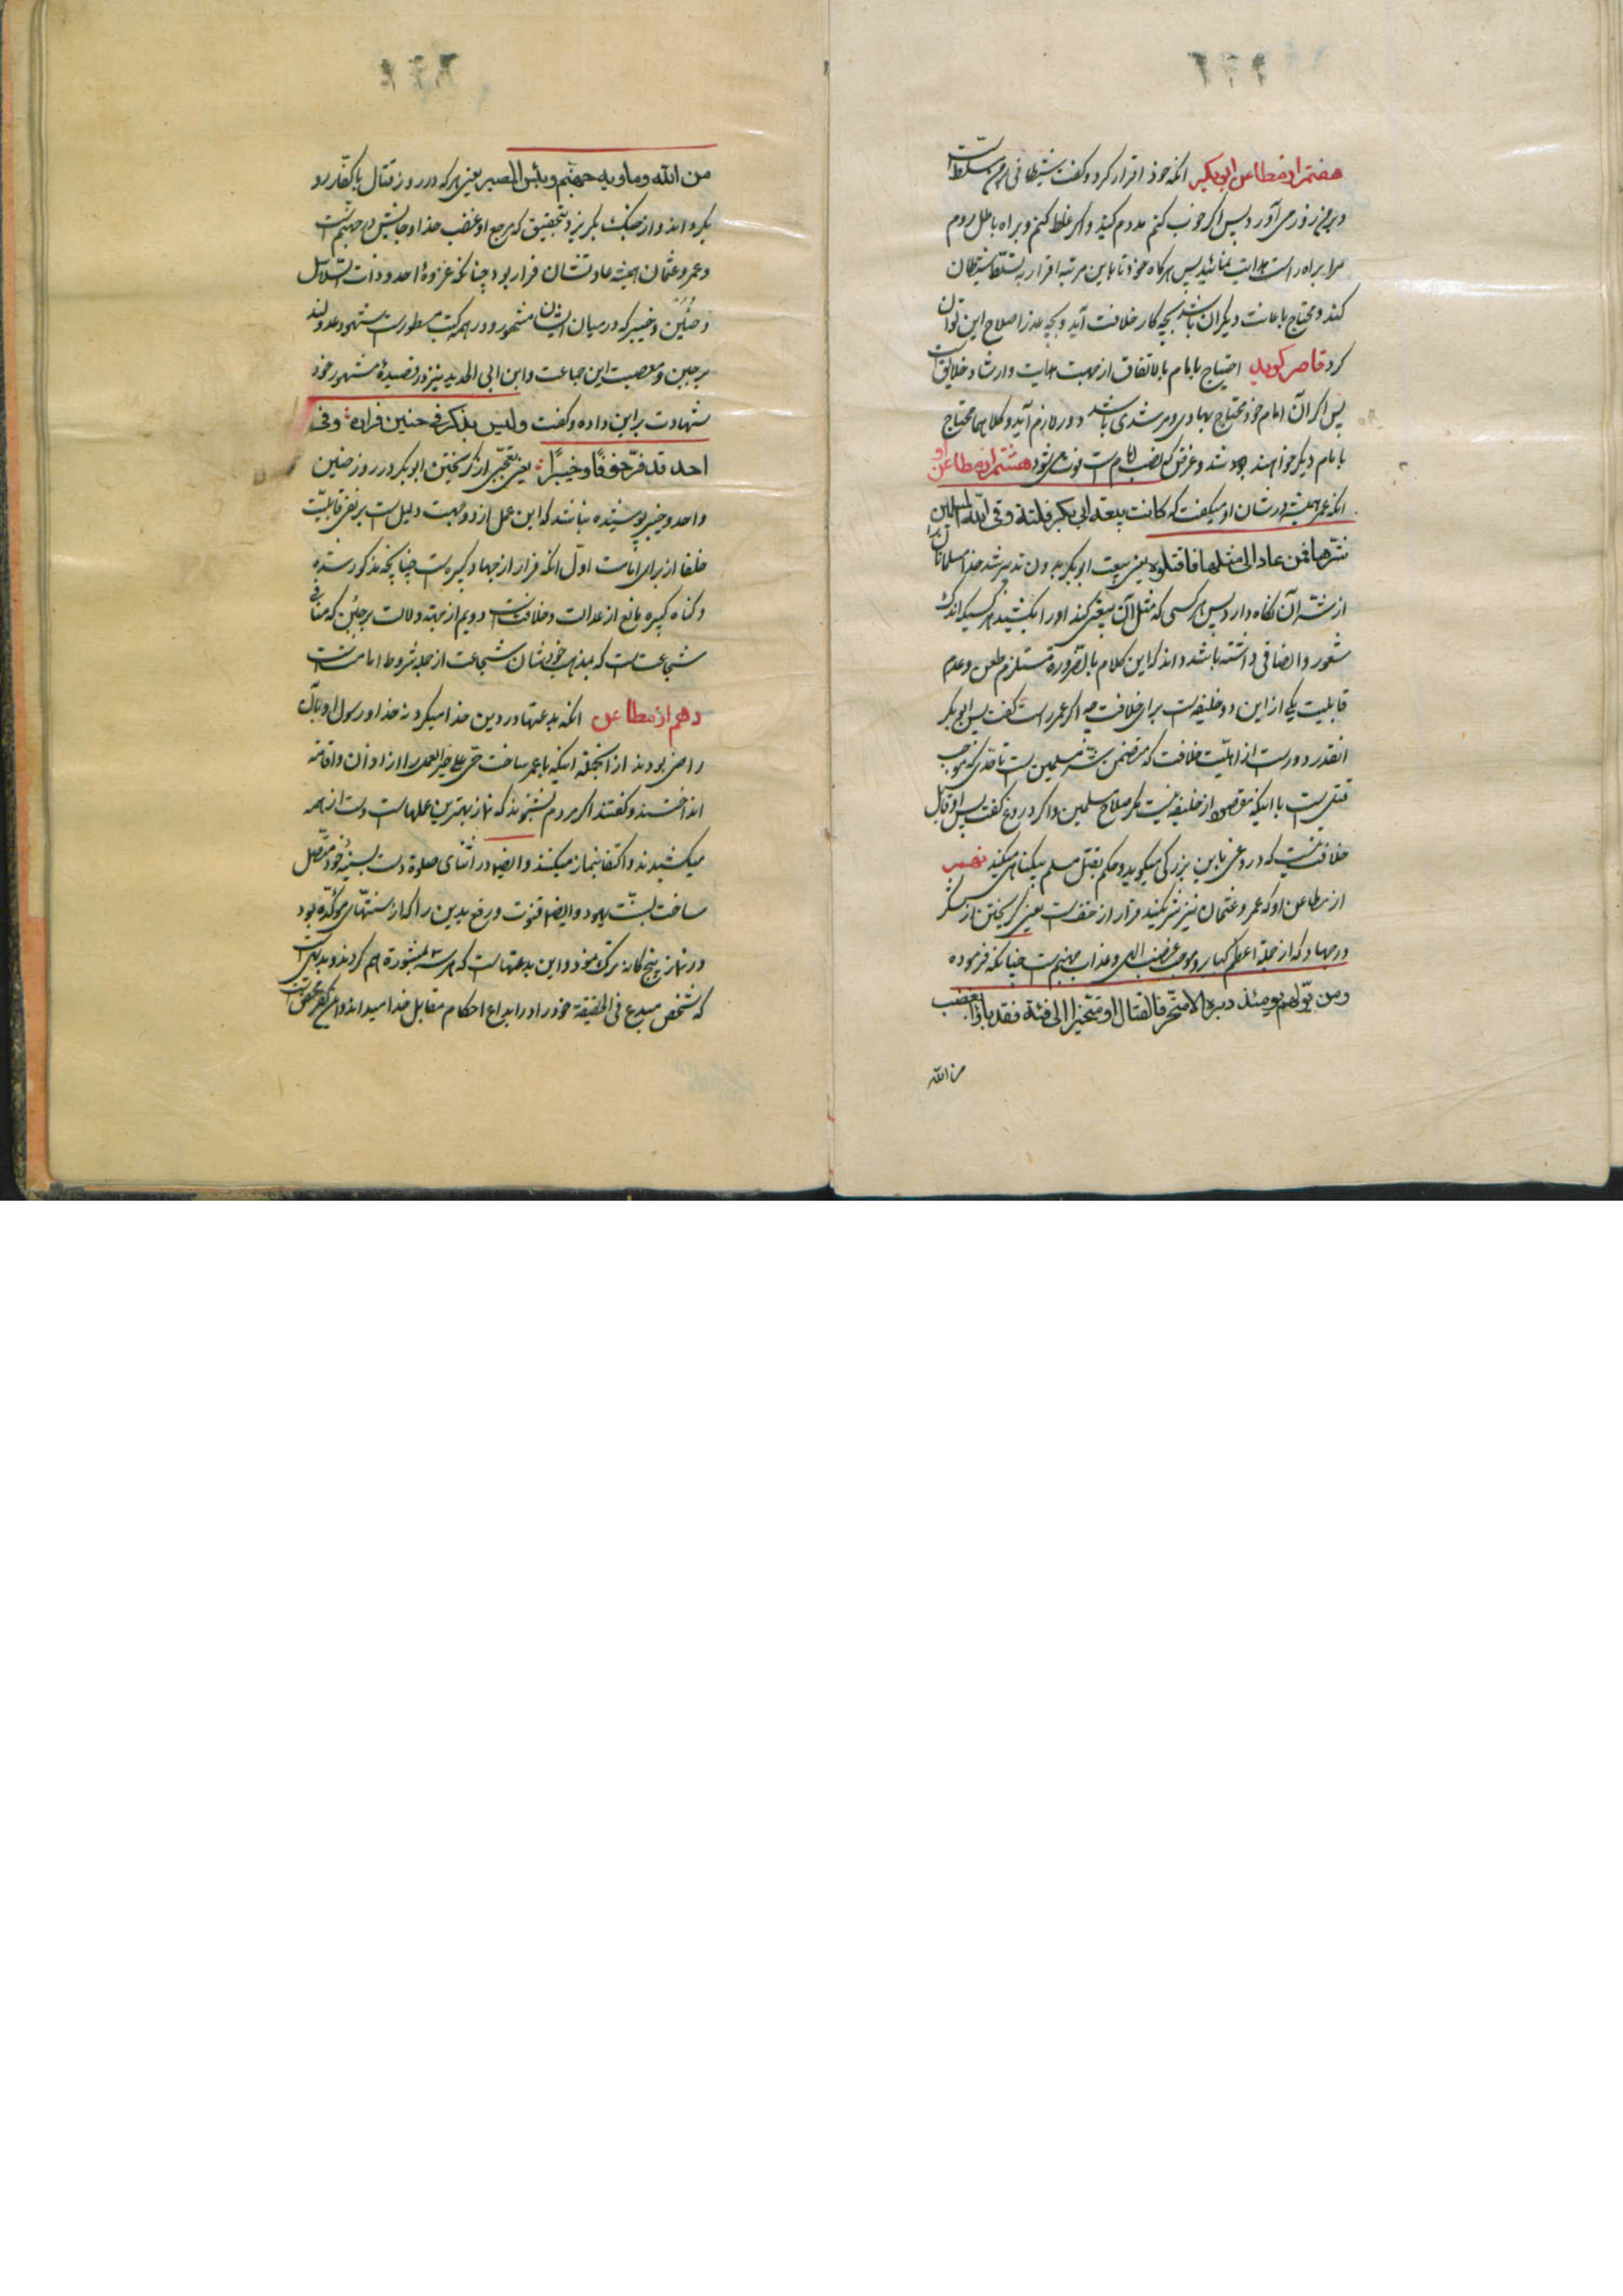 هفتم از مطاعن ابوبکر انکه خود اقرار کرد و کفت شیطانی بر من مسلط است
و بر من زور می آورد پس اکر خوب کنم مددم کنید و اکر غلط کنم و براه باطل روم
مرا براه راست هدایت نمائید پس هرکاه خود تا باین مرتبه اقرار به تسلط شیطان
کند و محتاج باعانت دیکران باشد بچه کار خلافت آید و بچه عذر اصلاح این توان
کرد قاصر کوید احتیاج بامام بالاتفاق از جهت هدایت و ارشاد خلایق است
پس اکر آن امام خود محتاج بهادی و مرشدی باشد دور لازم آید و کلاهما محتاج
بامام دیکر خواهند بود شد و غرض که نصب امام است فوت می شود هشتم از مطاعن او
انکه عمر همیشه در شان او میکفت که کانت بیعة ابی بکر فلتة وقی الله المسلمین
شرها فمن عاد الی مثلها فاقتلوه یعنی بیعت ابوبکر بدون تدبیر شد خدا مسلمانان را
از شر آن نکاه دارد پس هر کسی که مثل آن بیعتی کند او را بکشید هر کسیکه اندک
شعور و انصافی داشته باشد داند که این کلام بالضرورة مستلزم طعن و عدم
قابلیت یکی از این دو خلیفه است برای خلافت چه اکر عمر راست کفت پس ابوبکر
انقدر دور است از اهلیت خلافت که متضمن شر مسلمین است تا حدی که موجب
قتل است با اینکه مقصود از خلیفه نیست مکر صلاح مسلمین و اکر دروغ کفت پس او قابل
خلافت نیست که دروغی باین بزرکی میکوید و حکم بقتل مسلم بیکناه میکند نهم
از مطاعن او که عمر و عثمان نیز شریکند فرار از حقست یعنی کریختن از لشکر
در جهاد که از جملهٔ اعظم کبایر و موجب غضب الهی و عذاب جهنم است چنانکه فرموده
ومن یولهم یومئذ دبره الا متحرفا لقتال او متحیزا الی فئة فقد باء بغضب
من الله
من الله وماویه جهنم وبئس المصیر یعنی هر که در روز قتال با کفار رو
بکرداند و از جنک بکریزد بتحقیق که مرجع او غضب خدا و جایش در جهنم است
و عمر و عثمان همیشه عادتشان فرار بود چنانکه غزوهٔ احد و ذات السلاسل
و حنین و خیبر که در میان ایشان مشهور و در همه کتب مسطور است شهود عدولند
بر جبن و معصیت این جماعت و ابن ابی الحدید نیز در قصیدهٔ مشهور خود
شهادت بر این داده و کفت ولیس بنکر فی حنین فراره وفی
احد قد فر خوفا وخیبرا یعنی تعجبی از کریختن ابوبکر در روز حنین
و احد و خیبر پوشیده نباشد که این عمل از دو جهت دلیل است بر نفی قابلیت
خلفا از برای امامت اول انکه فرار از جهاد کبیره است چنانچه مذکور شد
و کناه کبیره مانع از عدالت و خلافت است دویم از جهة دلالت بر جبن که منافی
شجاعت است که بمذهب خودشان شجاعت از جمله شروط امامت است
دهم از مطاعن انکه بدعتها در دین خدا میکرد نه خدا و رسول او بآن
راضی بودند از انجمله اینکه با عمر ساخت حی علی خیر العمل را از اذان و اقامه
انداختند و کفتند اکر مردم بشنوند که نماز بهترین عملهاست دست از همه
میکشیدند و اکتفا بنماز میکنند و ایضا در اثنای صلوة دست بسینهٔ خود متصل
ساخت بسنت یهود و ایضا قنوت و رفع یدین را که از سنتهای مؤکده بود
در نماز پنج کانه ترک نمود و این بدعتهاست که همه بمشورة هم کردند و بدیهی است
که شخص مبدع فی الحقیقة خود را در ابداع احکام مقابل خدا میداند و این کفر محض است